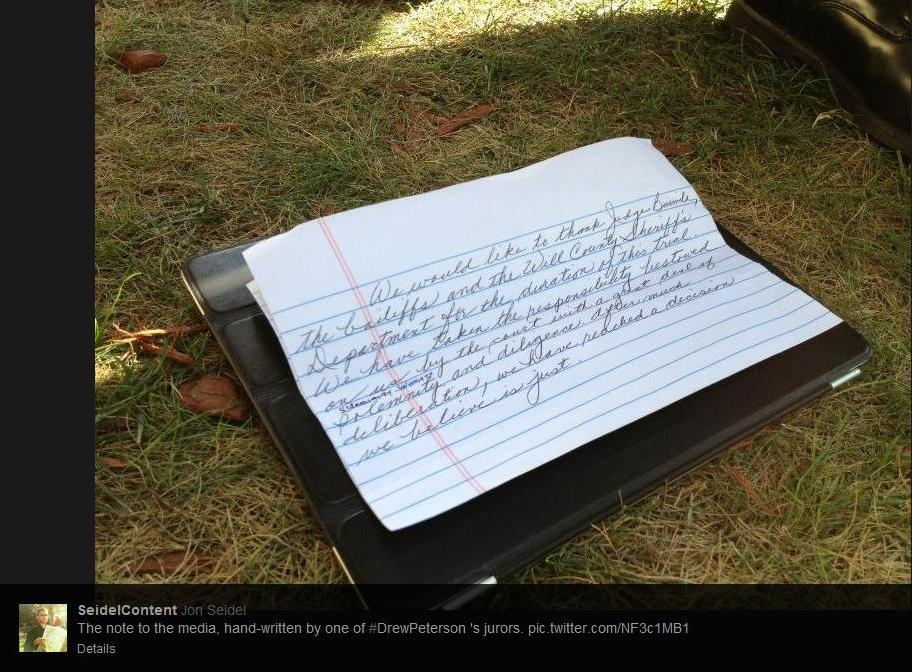 We would like to thank Judge Burmila,
the bailiffs and the Will County Sheriff's
Department for the duration of this trial
We have taken the responsibility bestowed
on us by the court with a great deal of
solemnity and diligence. After much
deliberation, we have reached a decision
we believe is just
SeidelContent Jon Seidel
The note to the media, hand-written by one of #DrewPeterson 's jurors. pic.twitter.com/NF3c1MB1
Details